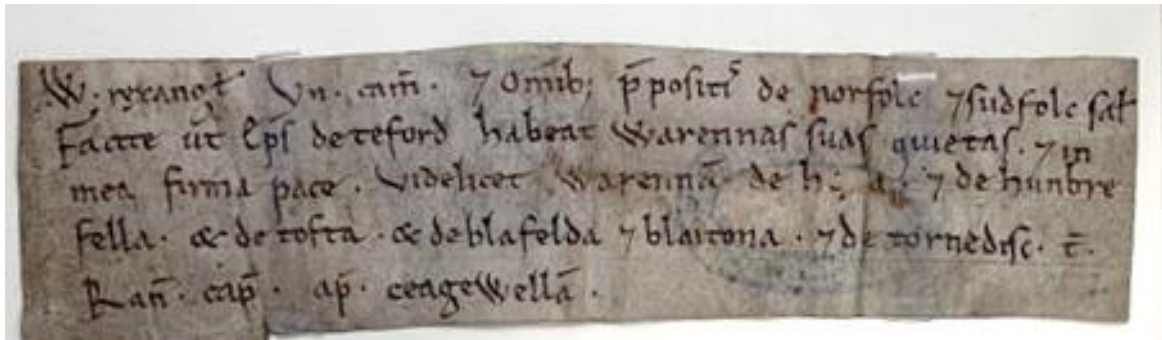 W. rex angł Vn. cam̄. ⁊ Omīb; p̄positis de norfolc ⁊ sudfolc sał
Facite ut ep̄s de teford habeat warennas suas quietas. ⁊ in
mea firma pace. Videlicet Warennā de ⁊ de hunbre
fella. & de tofta. & de blafelda ⁊ blaitona. ⁊ de tornedisc. t̄.
Ran̄. cap̄. ap̄. ceagewellā.